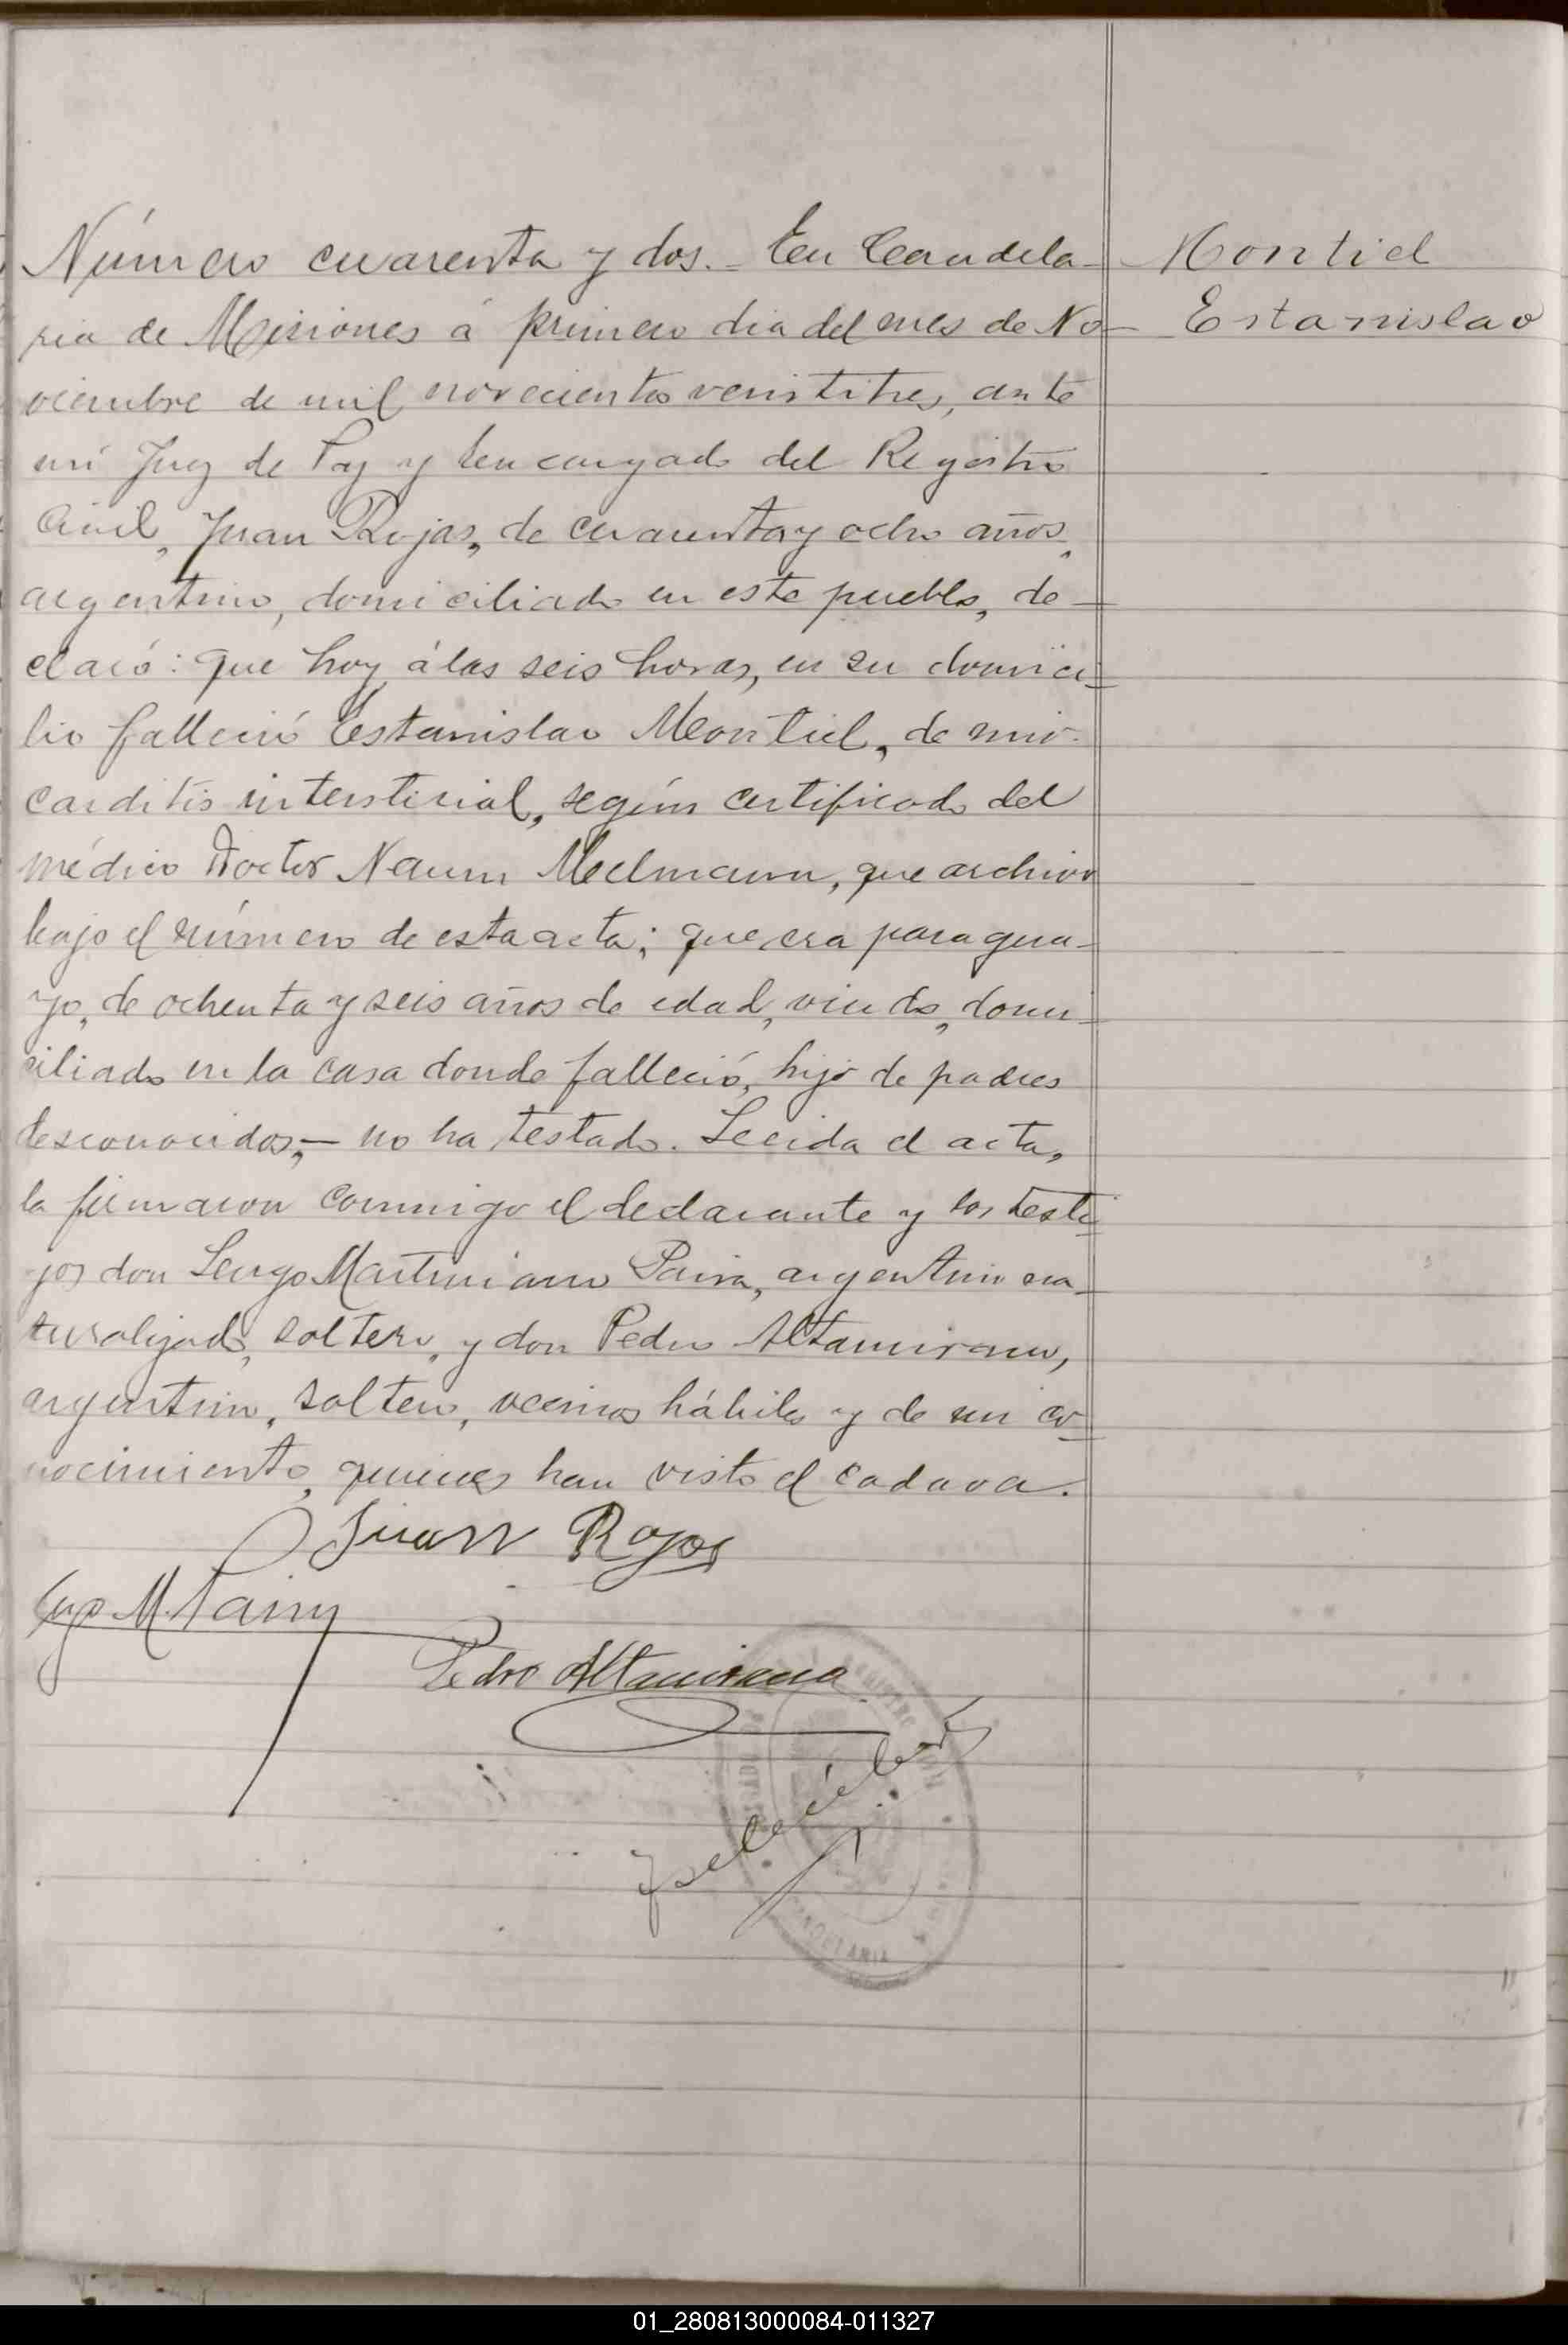 Número cuarenta y dos.- En Candela- Montiel
ria de Misiones á primero dia del mes de No- Estanislao
viembre de mil novecientos veintitres, ante
mi Juez de Paz y Encargado del Registro
Civil, Juan Rojas, de cuarenta y ocho años,
argentino, domiciliado en este pueblo, de-
claró: que hoy á las seis horas, en su domici-
lio falleció Estanislao Montiel, de mio-
carditis intersticial, según certificado del
médico Doctor Naum Meelmann, que archivo
bajo el número de esta acta; que era paragua-
yo, de ochenta y seis años de edad, viudo, domi-
ciliado en la casa donde falleció, hijo de padres
desconocidos,- no ha testado. Leeida el acta,
la firmaron conmigo el declarante y los testi-
gos don Martiniano Paiva, argentino na-
turalizado, soltero, y don Pedro Altamirano,
argentino, soltero, vecinos hábiles y de mi co-
nocimiento, quienes han visto el cadaver.
Juan Rojas
M. Paiva
Pedro Altamirano
REGISTRO CIVIL
CANDELARIA
01_280813000084-011327